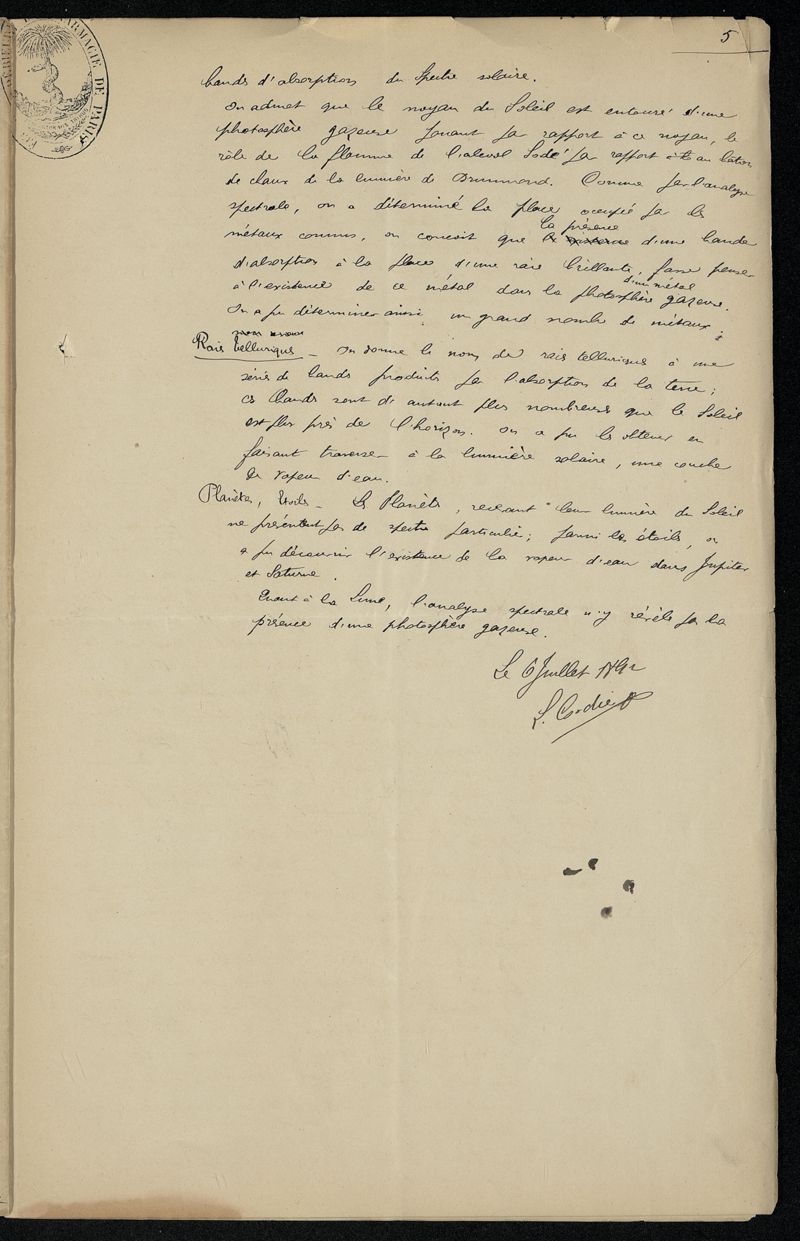 5
PHARMACIE DE PARIS
bandes d'absorption du Spectre solaire.
On admet que le noyau du Soleil est entouré d'une
photosphère gazeuse jouant par rapport à ce noyau, le
rôle de la flamme de l'alcool Sodé par rapport au bâton
de chaux de la lumière de Drummond. Comme par l'analyse
spectrale, on a déterminé la place occupée par les
métaux connus, on conçoit que la présence d'une bande
d'absorption à la place d'une raie brillante d'un métal, fasse penser
à l'existence de ce métal dans la photosphère gazeuse.
On a pu déterminer ainsi un grand nombre de métaux :
Raies telluriques _ On donne le nom de raies telluriques à une
série de bandes produites par l'absorption de la terre ;
ces bandes sont d'autant plus nombreuses que le Soleil
est plus près de l'horizon. On a pu les obtenir en
faisant traverser à la lumière solaire, une couche
de vapeur d'eau.
Planètes, Etoiles _ Les Planètes, recevant leur lumière du Soleil
ne présentent pas de spectre particulier ; parmi les étoiles, on
a pu découvrir l'existence de la vapeur d'eau dans Jupiter
et Saturne.
Quant à la Lune, l'analyse spectrale n'y révèle pas la
présence d'une photosphère gazeuse.
Le 6 Juillet 1892
L. Cordier